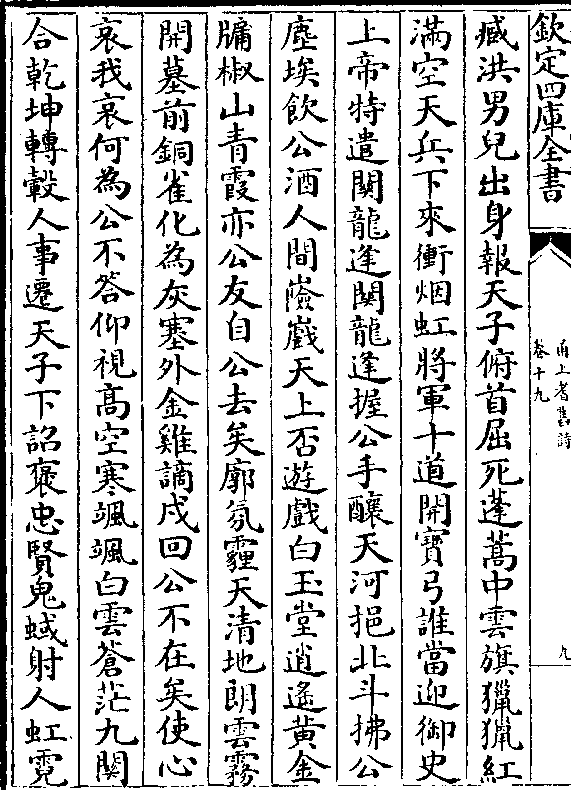 欽定四庫全書
甬上耆舊詩
卷十九
九
臧洪男兒出身報天子俯首屈死蓬蒿中雲旗獵獵紅
滿空天兵下來衝烟虹將軍十道開寶弓誰當迎御史
上帝特遣關龍逢關龍逢握公手釀天河挹北斗拂公
塵埃飲公酒人間嶮巇天上否遊戲白玉堂逍遙黄金
牗椒山青霞亦公友自公去矣廓氛霾天清地朗雲霧
開墓前銅雀化為灰塞外金雞謫戍回公不在矣使心
哀我哀何為公不答仰視髙空寒颯颯白雲蒼茫九闗
合乾坤轉轂人事遷天子下詔褒忠賢鬼蜮射人虹霓